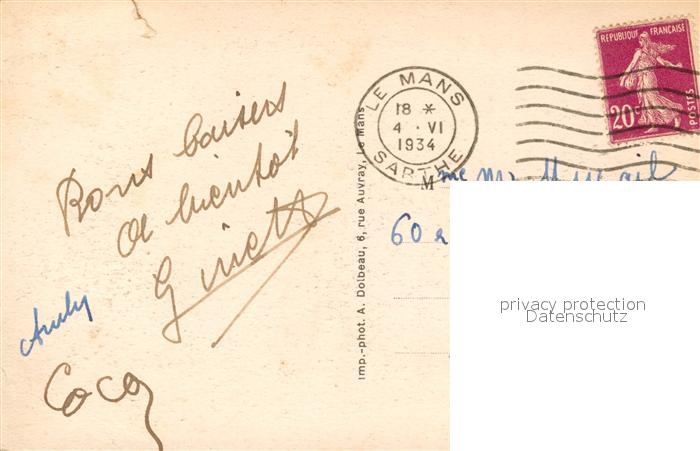 Bons baisers
à bientôt
Ginette
Andy
Coco
Imp.-phot. A. Dolbeau, 6, rue Auvray, Le Mans
LE MANS
18 *
4 · VI
1934
SARTHE
REPUBLIQUE FRANÇAISE
20c
POSTES
M
60
privacy protection
Datenschutz